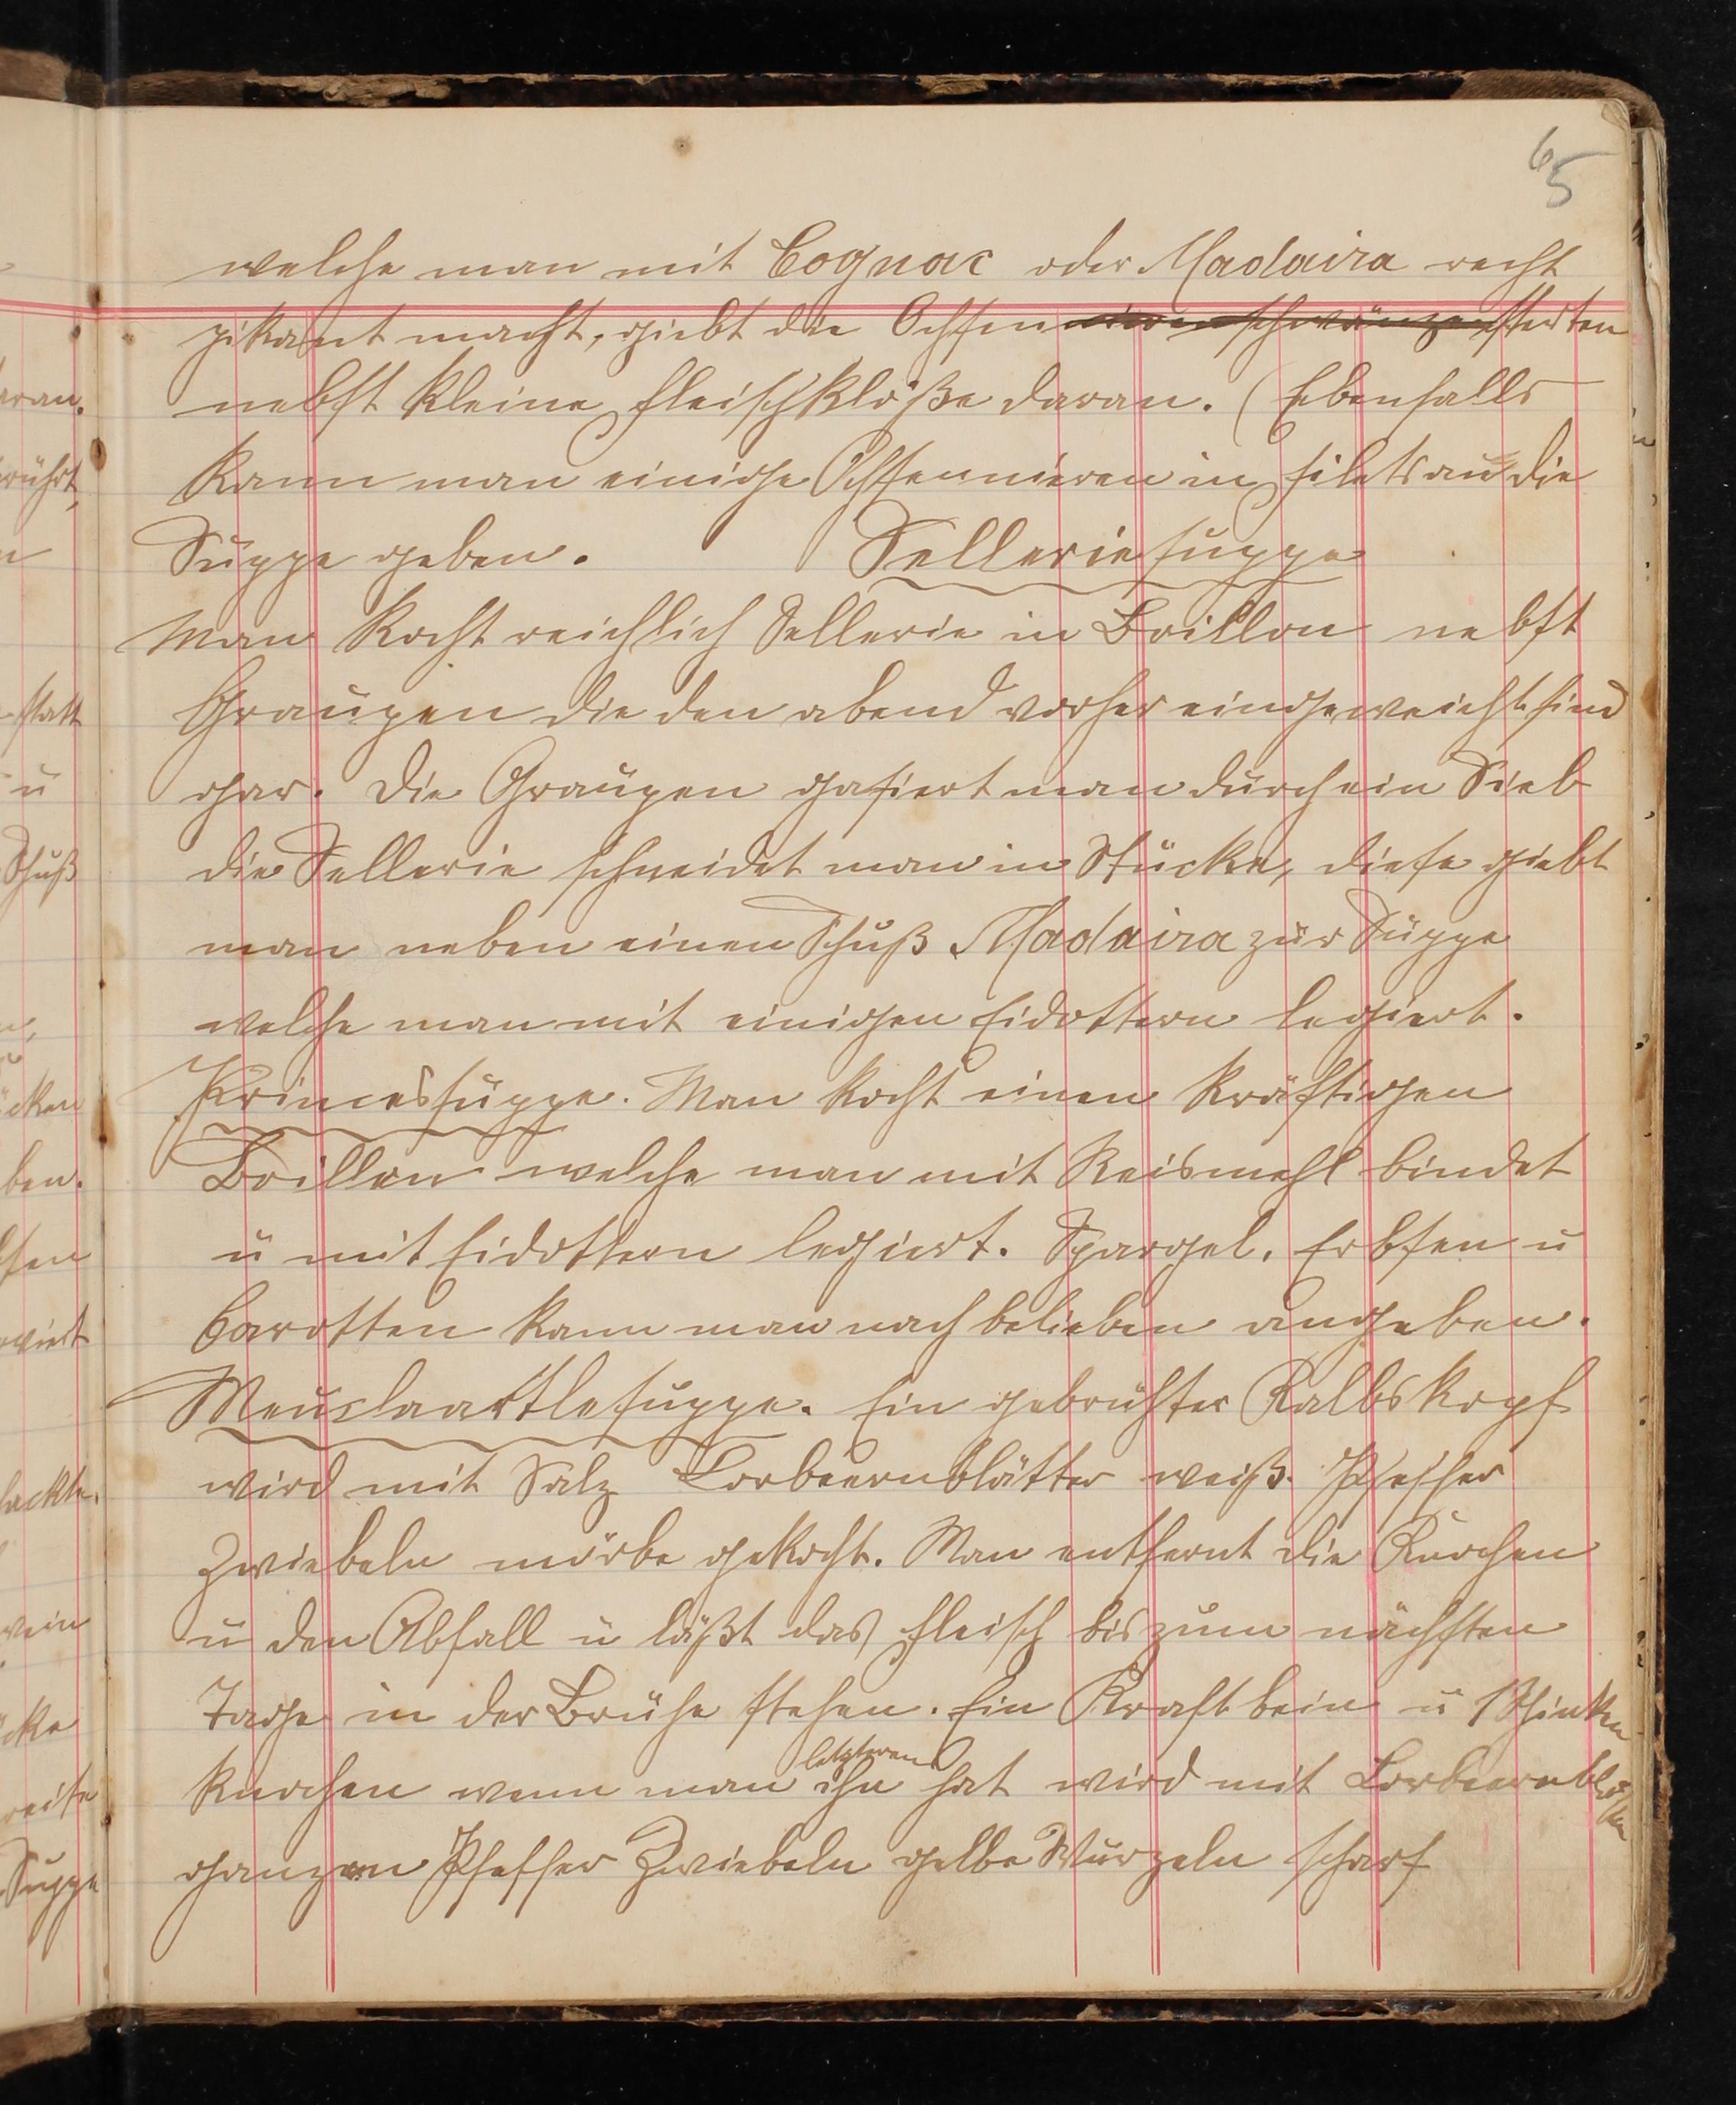 65
welche man mit Cognac oder Madaira recht
pikant macht, giebt die Ochsennierenschwänzesterten
nebst kleine Fleischklöße daran. (Ebenfalls
kann man einige Ochsennieren in Filets an die
Suppe geben. Selleriesuppe
Man kocht reichlich Sellerie in Boillon nebst
Graupen die den abend vorher eingeweicht sind
gar. Die Graupen passiert man durch ein Sieb
die Sellerie schneidet man in Stücke, diese giebt
man neben einen Schuß Madaira zur Suppe
welche man mit einigen Eidottern legiert.
Princessuppe. Man kocht einen kräftigen
Boillon welche man mit Reismehl bindet
u mit Eidottern legiert. Spargel, Erbsen u
Carotten kann man nach belieben angeben.
Meuslaarttlesuppe. Ein gebrühter Kalbskopf
wird mit Salz Lorbeernblätter weiß. Pfeffer
Zwiebeln mörbe gekocht. Man entfernt die Knochen
u den Abfall u läßt das Fleisch bis zum nächsten
Tage in der Brühe stehen. Ein Kraftbein u 1 Schinken
letzteren
knochen wenn man ihn hat wird mit Lorbeernblätter
ganzen Pfeffer Zwiebeln gelbe Wurzeln scharf
aran.
rührt,
n
statt
u
Schuß
cken
ben.
sen
wirt
hackte.
wein
cke
reise
Suppe